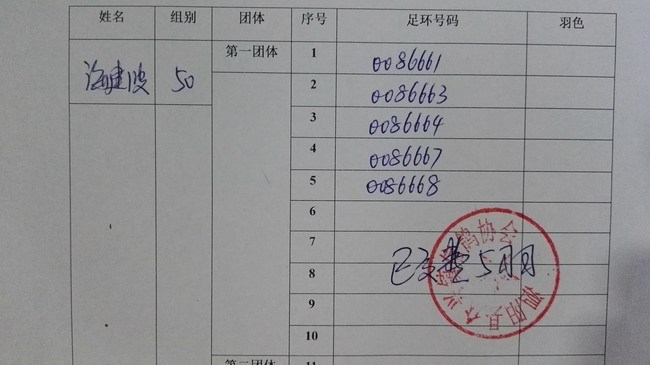 姓名 组别 团体 序号 足环号码 羽色
第一团体 1 0086661
健波 50 2 0086663
3 0086664
4 0086667
5 0086668
6
7
已交费5羽
8
9
10
第二团体 11
鸽协会
泗阳县